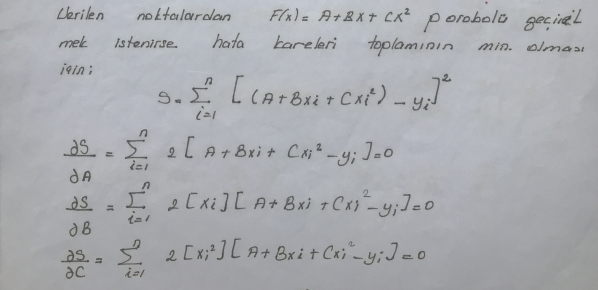 Verilen noktalardan F(x) = A+Bx+Cx² parabolü geçiril
mek istenirse. hata kareleri toplamının min. olması
için;
S = ∑_{i=1}^{n} [ (A+Bxi+Cxi²) - yi ]²
∂S/∂A = ∑_{i=1}^{n} 2[ A+Bxi+Cxi² - yi ] = 0
∂S/∂B = ∑_{i=1}^{n} 2[xi][ A+Bxi+Cxi² - yi ] = 0
∂S/∂C = ∑_{i=1}^{n} 2[xi²][ A+Bxi+Cxi² - yi ] = 0